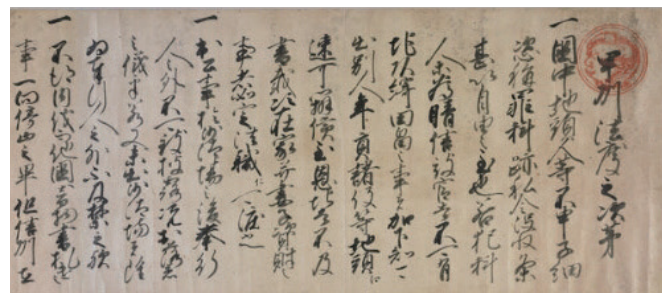 甲州法度之次第
一 國中地頭人等不申子細
恣稱罪科跡私令没収条
甚以自由之至也若犯科
人為晴信被官者不可有
地頭綺田畠之事者加下知可
出別人年貢諸役等地頭江
速可弁償至恩地者不及
書載次在家并妻子資財之
事者如定法職江可渡之
一 公事出於沙汰場之後奉行
人之外不可致披露況於落着
之儀乎若又未出沙汰場以前者
為奉行人之外不及禁之歟
一 不得内儀而他國江音物書札遣
事一向停止之畢但信州在